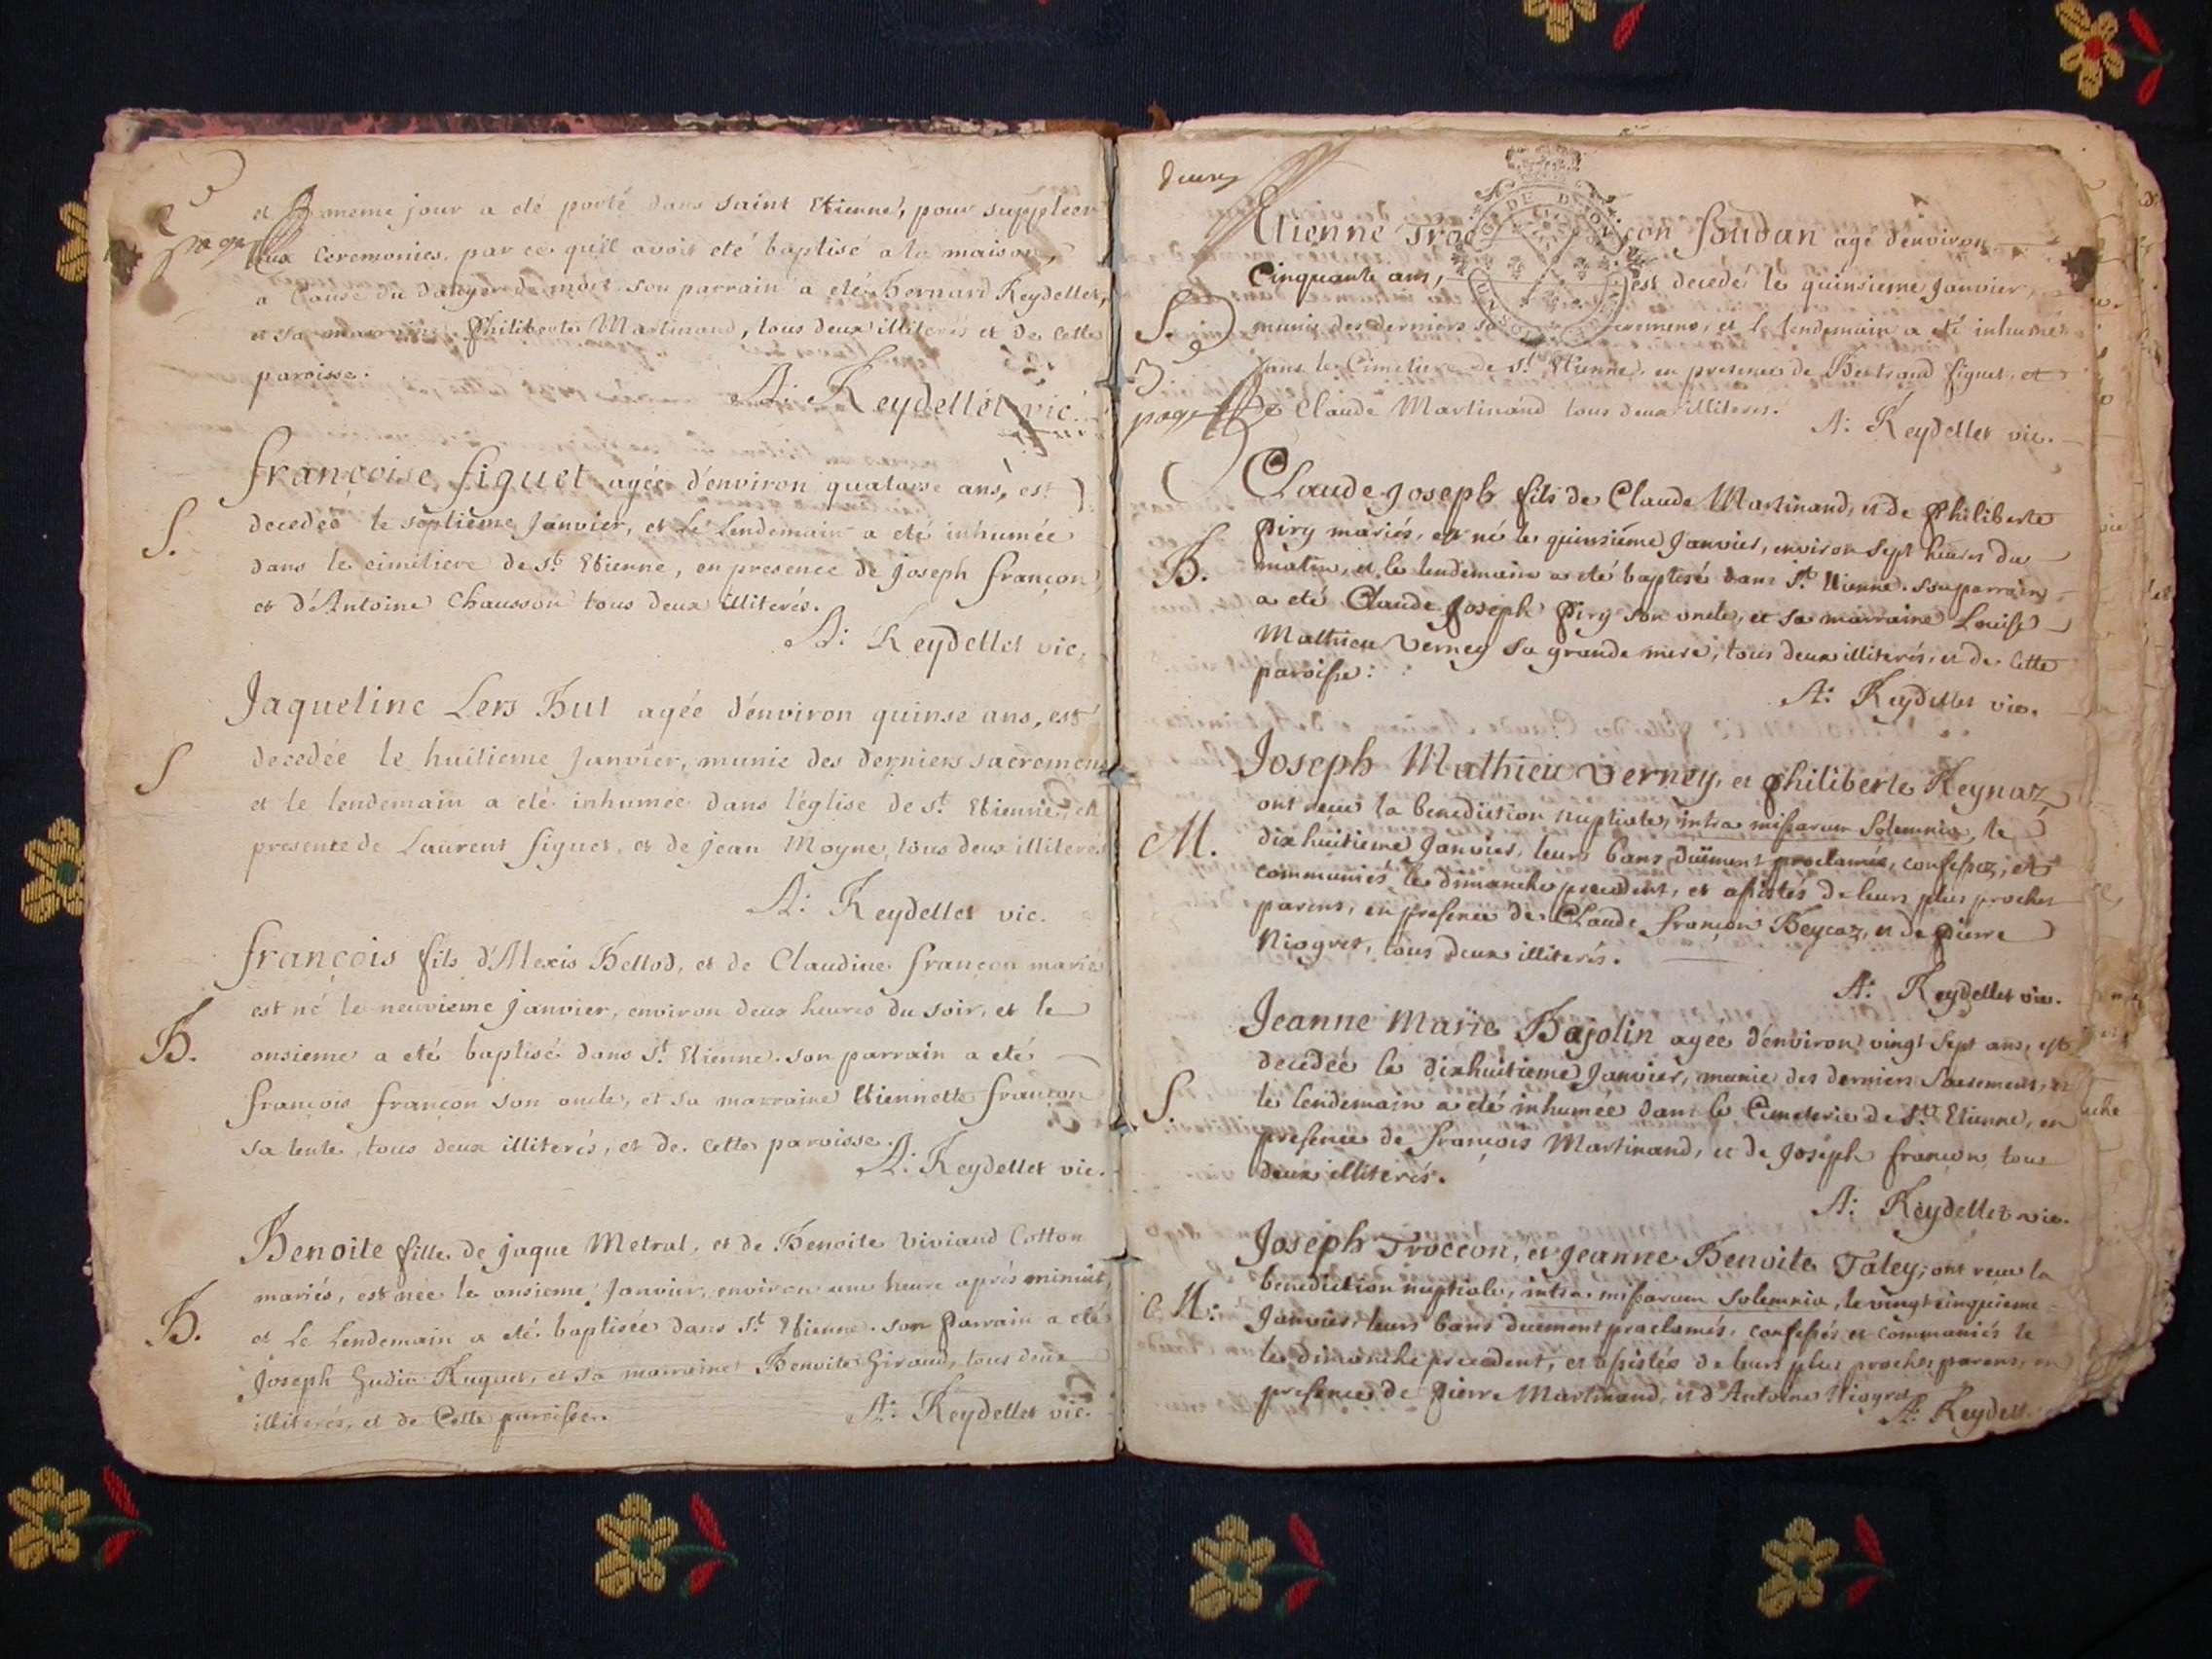 2
page
et le meme jour a eté porté dans saint Etienne, pour suppléer
aux ceremonies, par ce qu'il avoit eté baptisé a la maison,
a cause du danger de mort. son parrain a eté Bernard Reydellet,
et sa marraine Philiberte Martinand, tous deux illiterés et de cette
paroisse.
A: Reydellet vic.
françoise figuet agée d'environ quatorse ans, est
S.
decedée le septieme Janvier, et Le Lendemain a eté inhumée
dans le cimetiere de St. Etienne, en presence de Joseph françon
et d'Antoine Chausson tous deux illiterés.
A: Reydellet vic.
Jaqueline Lers But agée d'environ quinse ans, est
S
decedée le huitieme Janvier, munie des derniers sacremens
et le lendemain a eté inhumée dans l'église de St. Etienne, en
presence de Laurent figuet, et de jean Moyne, tous deux illiterés
A: Reydellet vic.
françois fils d'Alexis Bellod, et de Claudine françon mariés
est né le neuvieme janvier, environ deux heures du soir, et le
B.
onsieme a eté baptisé dans St. Etienne. son parrain a eté
françois françon son oncle, et sa marraine Etiennette françon
sa tente, tous deux illiterés, et de cette paroisse.
A: Reydellet vic.
Benoite fille de jaque Metral, et de Benoite Viviand Cotton
mariés, est née le onsieme Janvier, environ une heure après minuit,
B.
et Le Lendemain a eté baptisée dans St. Etienne. son parrain a eté
Joseph Gudin Ruguet, et sa marraine Benoite Giraud, tous deux
illiterés, et de Cette paroisse.
A: Reydellet vic.
Etienne Troc con Soudan agé d'environ
Cinquante ans, est decedé le quinsieme Janvier,
S.
munis des derniers sacremens, et le lendemain a eté inhumé
3
dans le Cimetiere de St. Etienne, en presence de Bertrand figuet, et
page
de Claude Martinand tous deux illiterés.
A: Reydellet vic.
Claude Joseph fils de Claude Martinand, et de Philiberte
Piry mariés, est né le quinsieme Janvier, environ sept heures du
B.
matin, et le lendemain a eté baptisé dans St. Etienne. son parrain
a eté Claude Joseph Piry son oncle, et sa marraine Louise
Mathieu Verney sa grande mere, tous deux illiterés, et de Cette
paroisse:
A: Reydellet vic.
Joseph Mathieu Verney, et Philiberte Reynaz
ont reçu la benediction nuptiale, intra missarum Solemnia, le
M.
dix huitieme Janvier, leurs bans duëment proclamés, confessez, et
communiés le dimanche precedent, et assistés de leurs plus proches
parens, en presence de Claude françon Beycaz, et de Pierre
Niogret, tous deux illiterés.
A: Reydellet vic.
Jeanne Marie Bajolin agée d'environ vingt Sept ans, est
decedée le dixhuitieme Janvier, munie des derniers Sacremens, et
S.
le lendemain a eté inhumée dans le Cimeterie de St. Etienne, en
presence de françois Martinand, et de Joseph françon, tous
deux illiterés.
A: Reydellet vic.
Joseph Troccon, et Jeanne Benoite Taley, ont reçu la
benediction nuptiale, intra missarum Solemnia, le vingt cinquieme
M:
Janvier, leurs bans duement proclamés, confessés et communiés le
le dimanche precedent, et assistés de leurs plus proches parens, en
presence de Pierre Martinand, et d'Antoine Niogret
A: Reydell